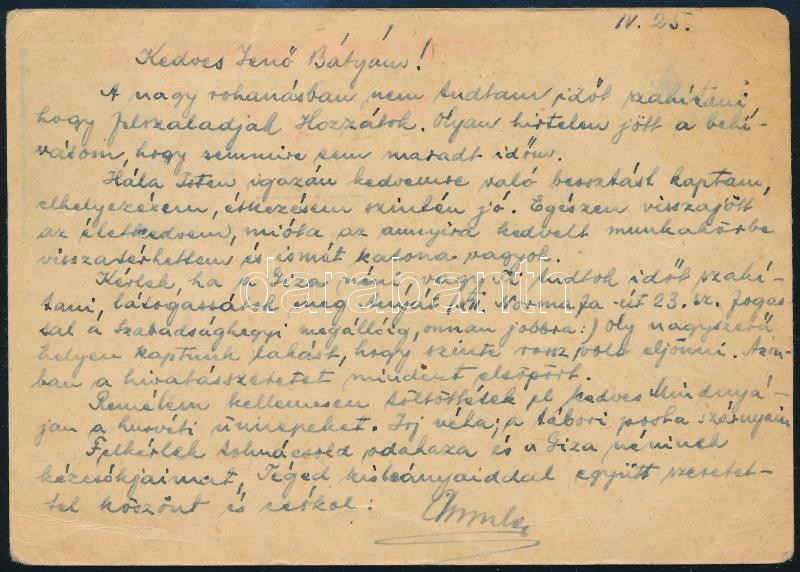 IV. 25.
Kedves Jenő Bátyám!
A nagy rohanásban nem tudtam időt szakítani
hogy felszaladjak Hozzátok. Olyan hirtelen jött a behí-
vásom, hogy semmire sem maradt időm.
Hála Isten igazán kedvemre való beosztást kaptam,
elhelyezésem, étkezésem szintén jó. Egészen visszajött
az életkedvem, mióta az annyira kedvelt munkakörbe
visszatérhettem és ismét katona vagyok.
Kérlek, ha a Giza néni, vagy Ti tudtok időt szakí-
tani, látogassátok meg Anyát XII. Normafa-út 23. sz. fogas
sal a Szabadsághegyi megállóig, onnan jobbra:) Oly nagyszerű
helyen kaptunk lakást, hogy szinte rossz volt eljönni. Azon-
ban a hivatásszeretet mindent elsöpört.
Remélem kellemesen töltöttétek el kedves Mindnyá-
jan a husvéti ünnepeket. Irj néha; a tábori posta szárnyain
Felkérlek tolmácsold odahaza és a Giza néninek
kézcsókjaimat, Téged kisleányaiddal együtt szeretet-
tel köszönt és csókol:
darabanth